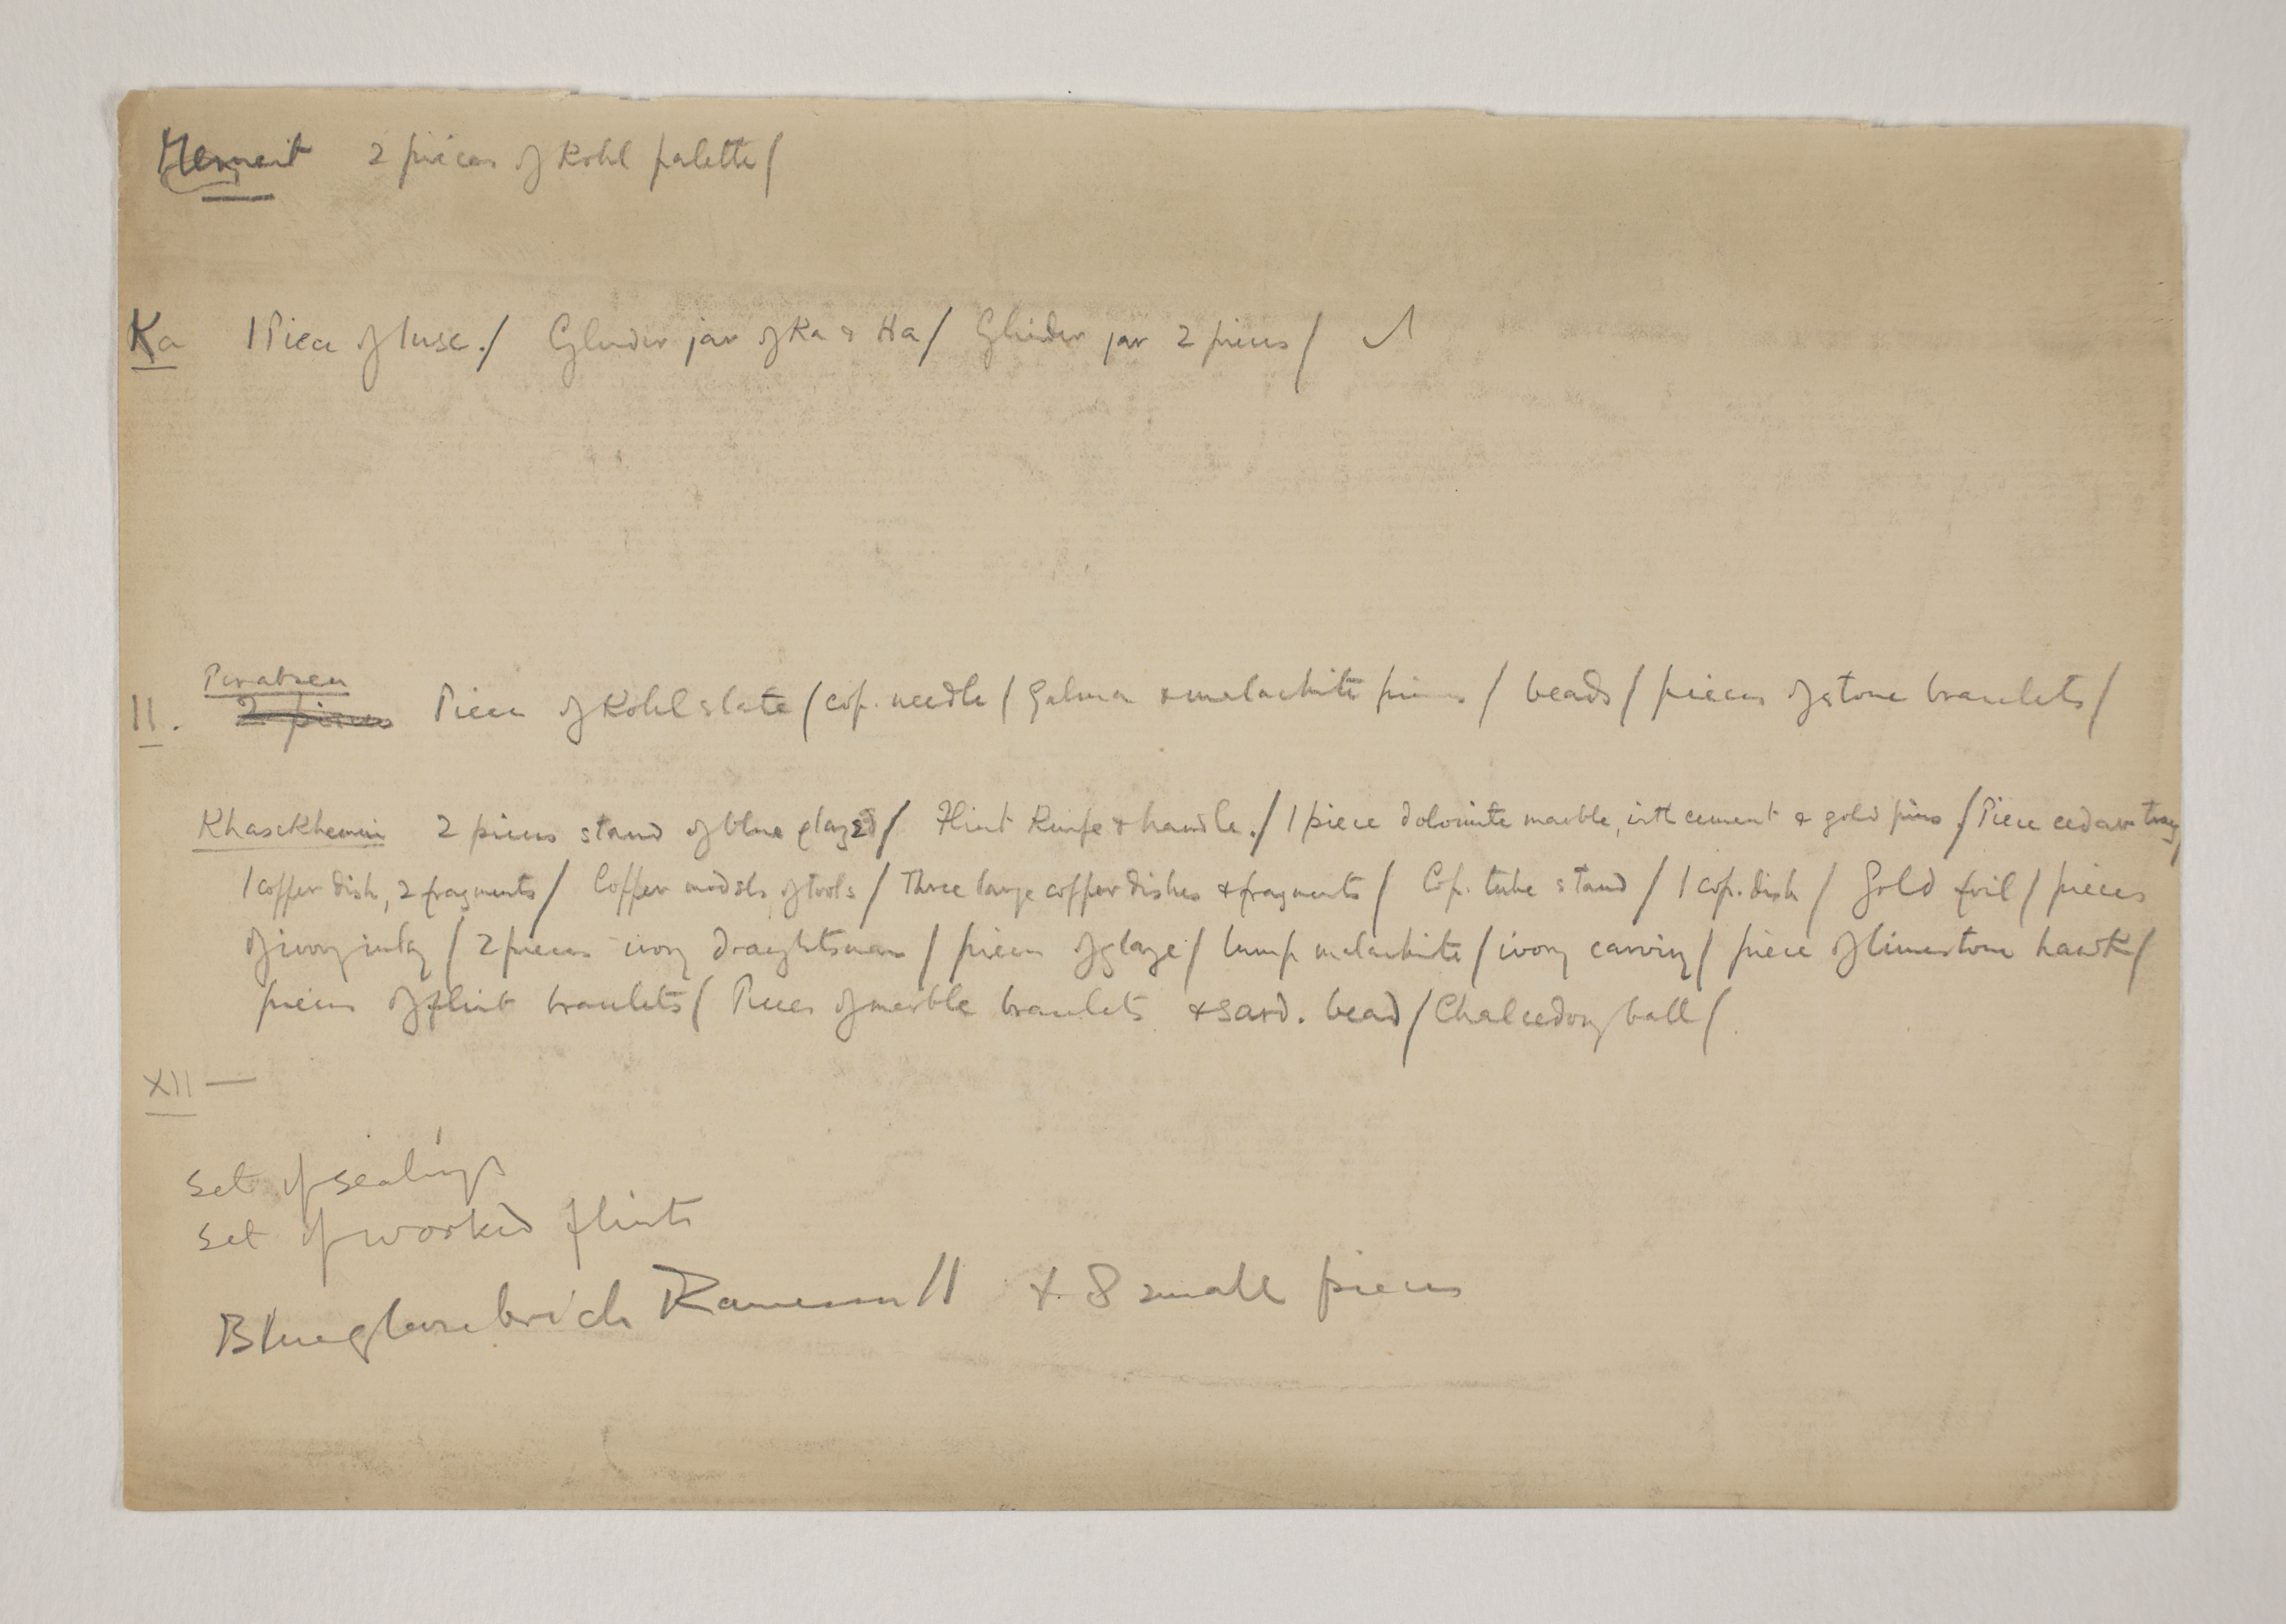 Merneit 2 pieces of Kohl palette/
Ka 1 Piece of insc./ Cylinder jar of Ka & Ha/ Cylinder jar 2 pieces/
Perabsen
II. 2 pieces Piece of Kohl slate/cop. needle/Galena & malachite pieces/beads/pieces of stone bracelets/
Khasekhemui 2 pieces stand of blue glazed/ Flint Knife & handle./1 piece dolomite marble, with cement & gold pins/Piece cedar tray/
1 copper dish, 2 fragments/ Copper models of tools/Three large copper dishes & fragments/ Cop. tube stand/1 cop. dish/ Gold foil/pieces
of ivory inlay/2 pieces ivory draughtsman/pieces of glaze/lump malachite/ivory carving/piece of limestone hawk/
pieces of flint bracelets/Pieces of marble bracelets & sard. bead/Chalcedony ball/
XII —
Set of sealings
Set of worked flints
Blue glaze brick Rameses II + 8 small pieces